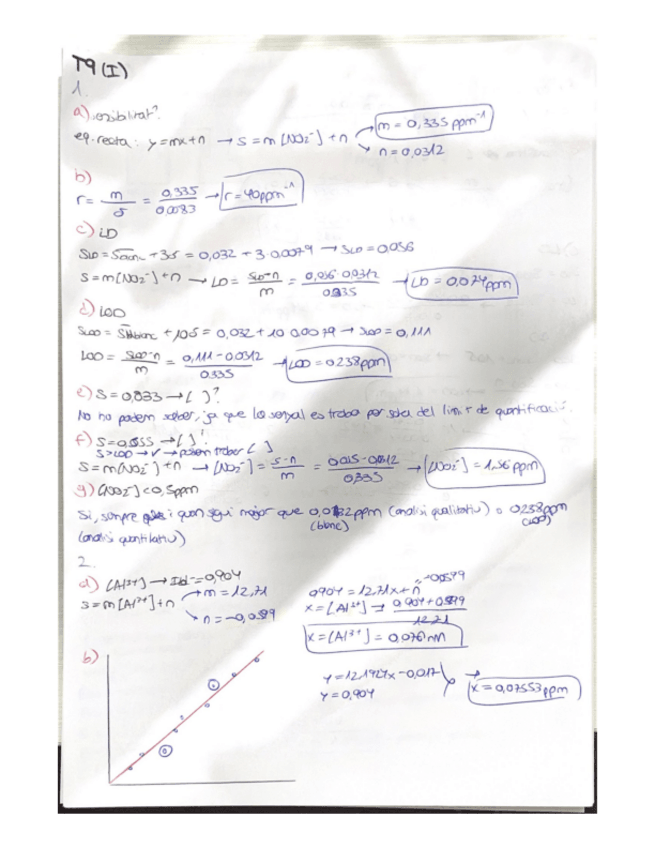 T9 (I)
1.
a) sensibilitat?
eq. recta: y=mx+n → S=m[NO2-]+n → m=0,335 ppm-1
→ n=0,0312
b)
r = m/s = 0,335/0,0083 → r=40ppm-1
c) LD
SLD = Sblanc + 3s = 0,032 + 3·0,0079 → SLD=0,056
S=m[NO2-]+n → LD = SLD-n/m = 0,056-0,0312/0,335 → LD=0,074ppm
d) LOD
SLOD = Sblanc + 10s = 0,032 + 10·0,0079 → SLOD = 0,111
LOD = SLOD-n/m = 0,111-0,0312/0.335 → LOD=0238ppm
e) S=0,033 → [ ]?
No ho podem saber, ja que la senyal es troba per sota del límit de quantificació.
f) S=0,555 → [ ]?
S>LOD → ✓ → podem trobar [ ]
S=m[NO2-]+n → [NO2-] = S-n/m = 0,555-0,0312/0,335 → [NO2-]=1,56ppm
g) [NO2-]<0,5ppm
Si, sempre i quan sigui major que 0,032ppm (anàlisi qualitatiu) o 0238ppm
(blanc) (LOD)
(anàlisi quantitatiu)
2.
a) [Al3+] → Ibl-=0,904
S=m[Al3+]+n → m=12,71
→ n=-0,0599
0904=12,71x+n → -0,0599
x=[Al3+] → 0,904+0,599/12,71
x=[Al3+]=0,076mM
b)
y=12,1927x-0,017
y=0,904
→ x=0,07553ppm